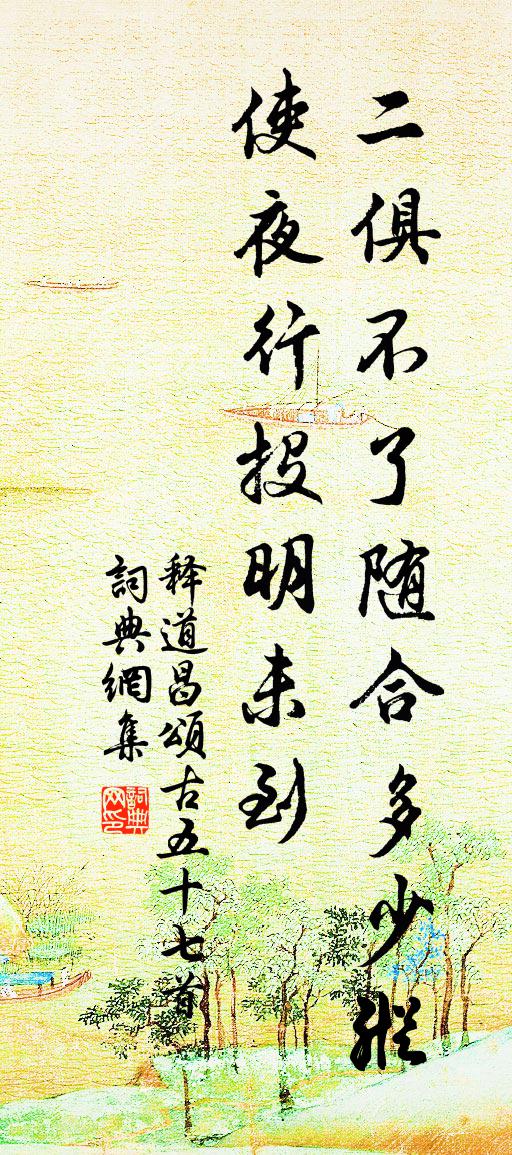 二俱不了随合多少縱
使夜行投明未到
释道昌頌古五十七首
詞典網集
詞典网印